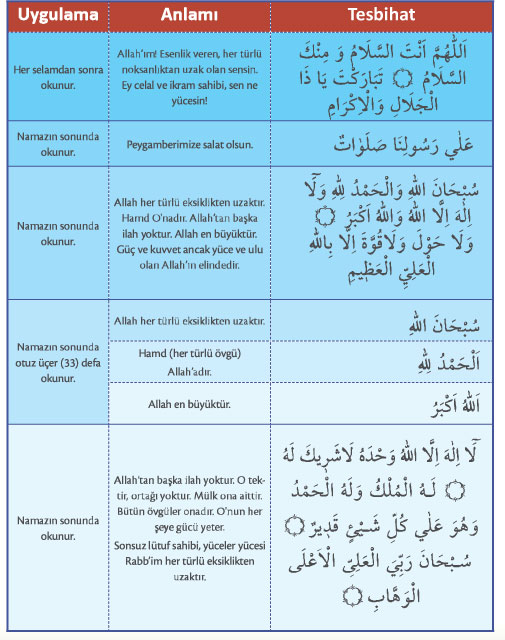 Uygulama Anlamı Tesbihat
Her selamdan sonra
okunur.
Allah’ım! Esenlik veren, her türlü
noksanlıktan uzak olan sensin.
Ey celal ve ikram sahibi, sen ne
yücesin!
اَللّٰهُمَّ اَنْتَ السَّلَامُ وَ مِنْكَ
السَّلَامُ ۞ تَبَارَكْتَ يَا ذَا
الْجَلَالِ وَالْاِكْرَامِ
Namazın sonunda
okunur.
Peygamberimize salat olsun.
عَلٰي رَسُولِنَا صَلَوَاتٌ
Namazın sonunda
okunur.
Allah her türlü eksiklikten uzaktır.
Hamd O’nadır. Allah’tan başka
ilah yoktur. Allah en büyüktür.
Güç ve kuvvet ancak yüce ve ulu
olan Allah’ın elindedir.
سُبْحَانَ اللّٰهِ وَالْحَمْدُ لِلّٰهِ وَلَٓا
اِلٰهَ اِلَّا اللّٰهُ وَاللّٰهُ اَكْبَرُ ۞
وَلَا حَوْلَ وَلَاقُوَّةَ اِلَّا بِاللّٰهِ
الْعَلِيِّ الْعَظِيمِ
Namazın sonunda
otuz üçer (33) defa
okunur.
Allah her türlü eksiklikten uzaktır.
سُبْحَانَ اللّٰهِ
Hamd (her türlü övgü)
Allah’adır.
اَلْحَمْدُ لِلّٰهِ
Allah en büyüktür.
اَللّٰهُ اَكْبَرُ
Namazın sonunda
okunur.
Allah'tan başka ilah yoktur. O tek-
tir, ortağı yoktur. Mülk ona aittir.
Bütün övgüler onadır. O’nun her
şeye gücü yeter.
Sonsuz lütuf sahibi, yüceler yücesi
Rabb’im her türlü eksiklikten
uzaktır.
لَٓا اِلٰهَ اِلَّا اللّٰهُ وَحْدَهُ لَاشَرِيكَ لَهُ
۞ لَهُ الْمُلْكُ وَلَهُ الْحَمْدُ
وَهُوَ عَلٰي كُلِّ شَيْئٍ قَدِيرٌ ۞
سُبْحَانَ رَبِّيَ الْعَلِيِّ الْاَعْلَى
الْوَهَّابِ ۞